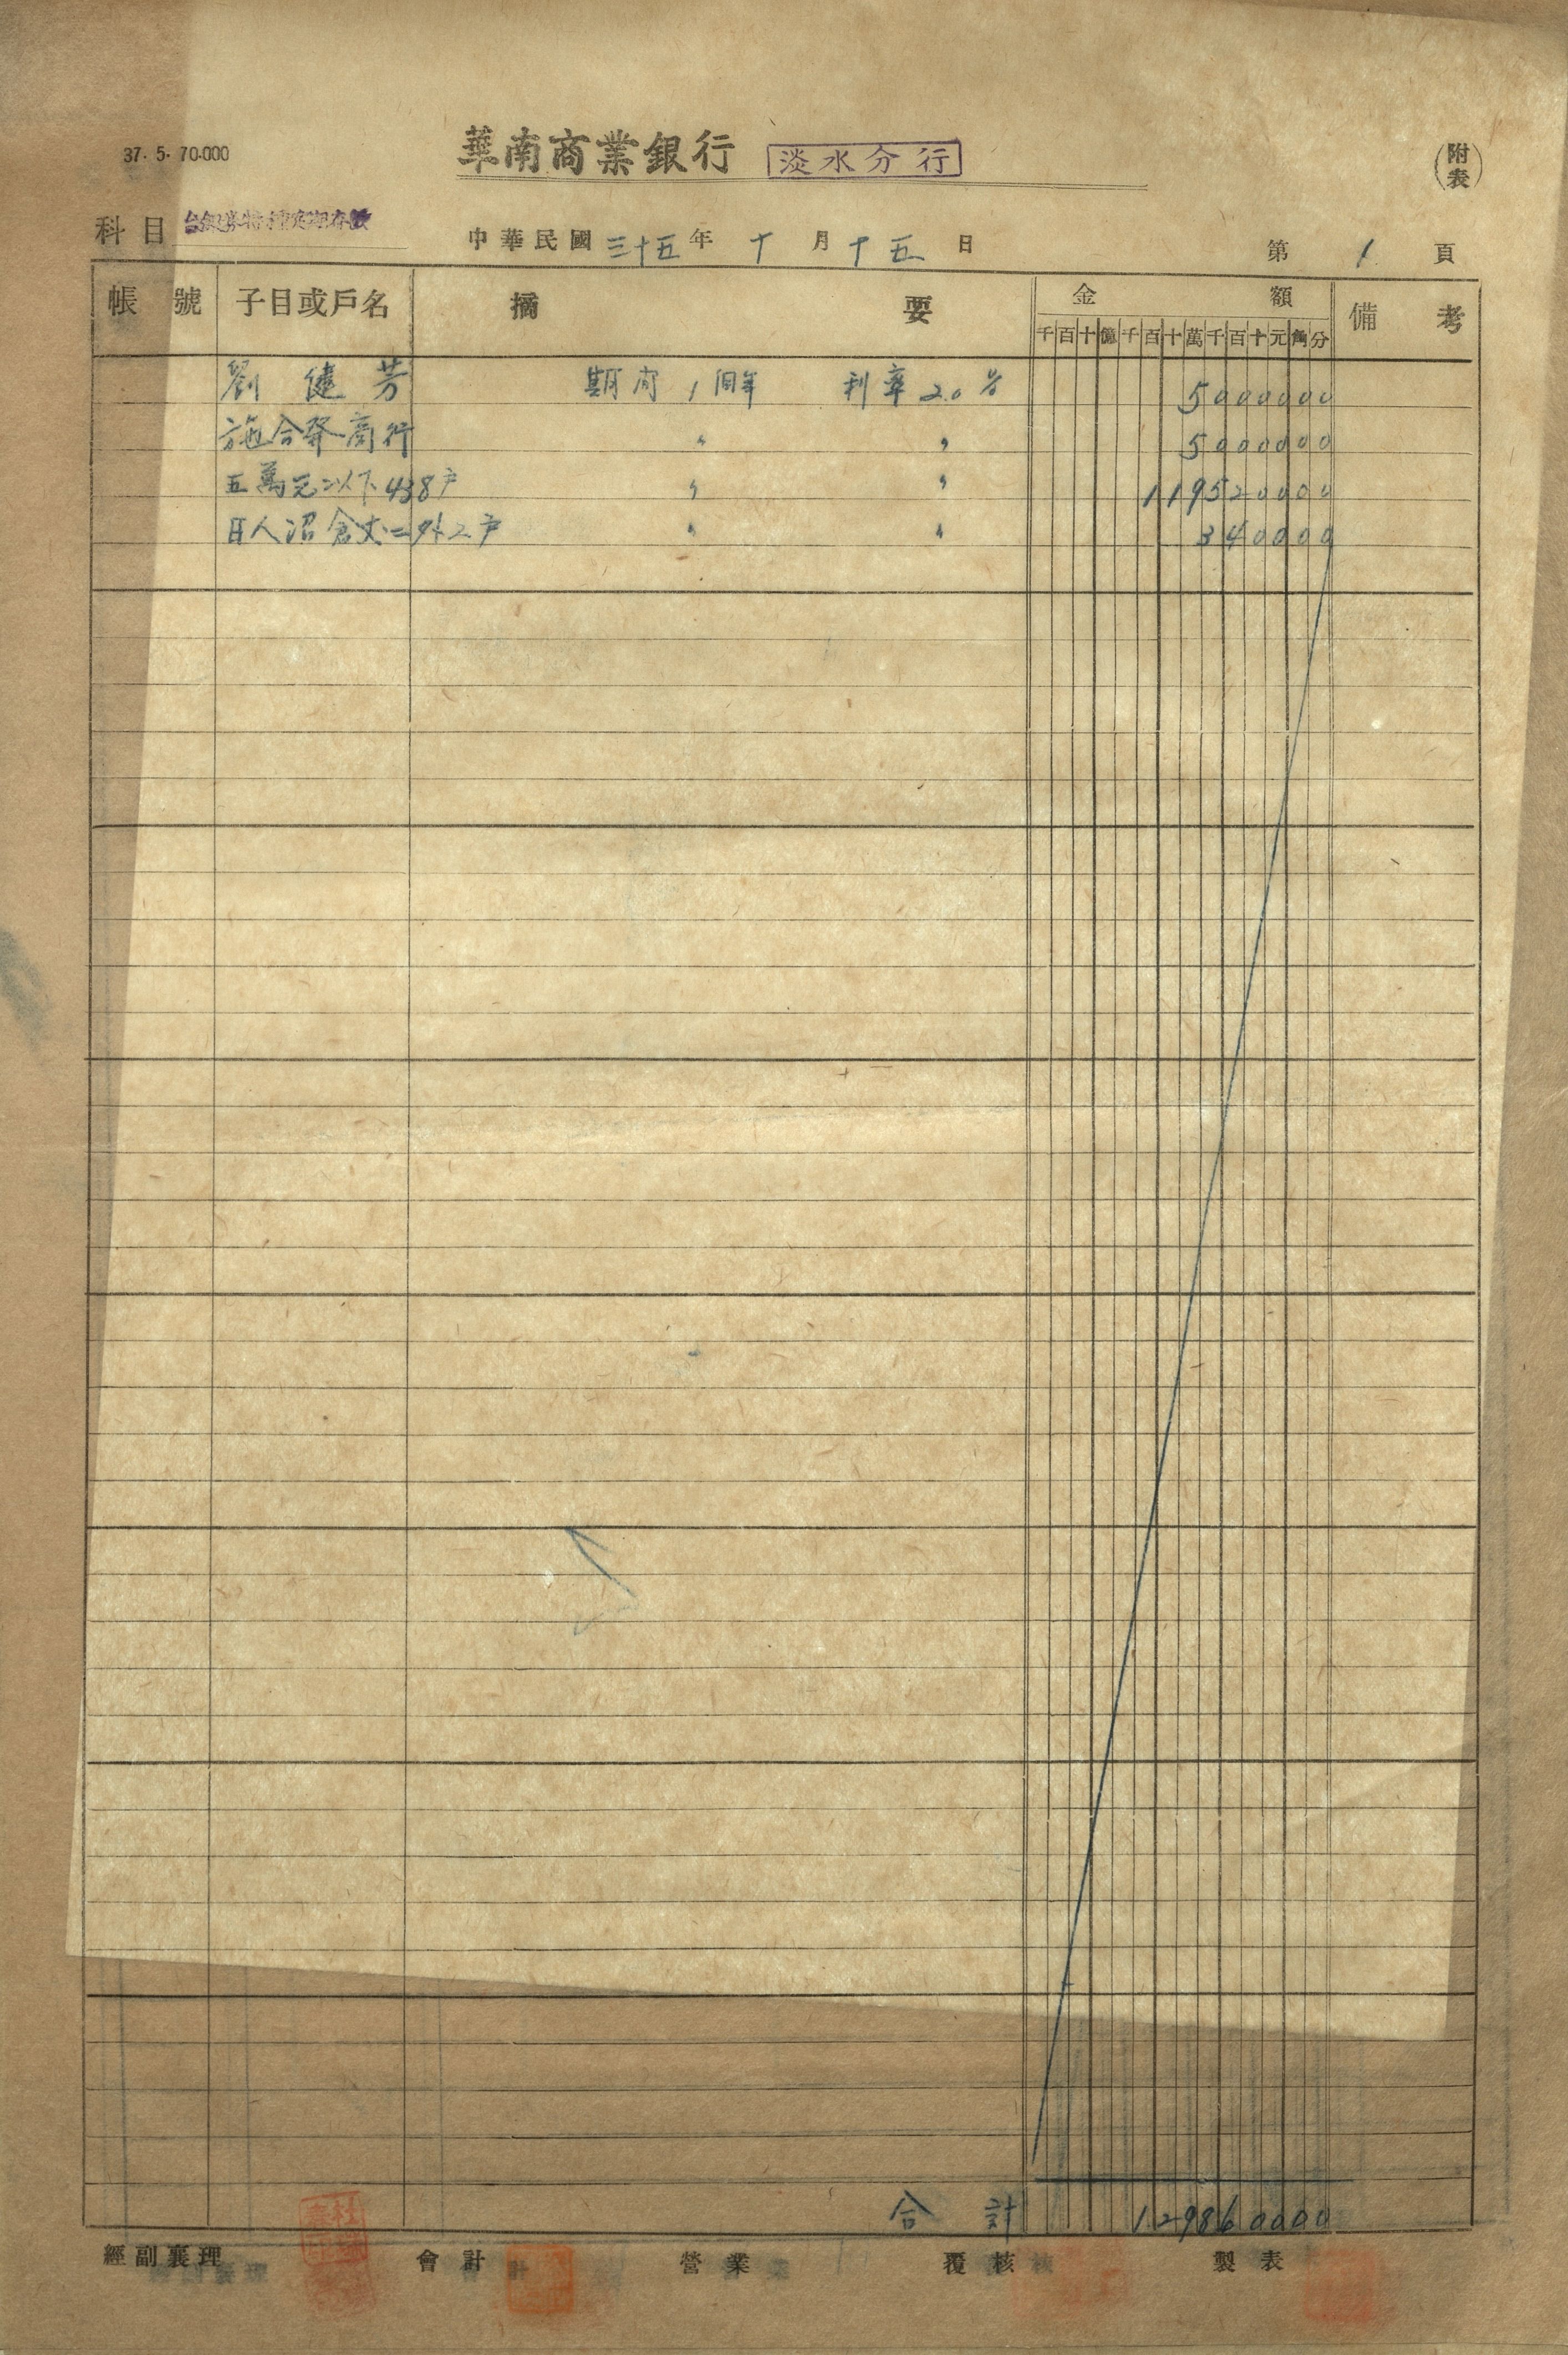 37. 5. 70.000
華南商業銀行 淡水分行
(附表)
科目 台銀券特種定期存款
中華民國三十五年十月十五日
第 1 頁
帳號 子目或戶名 摘要 金額 備考
千百十億千百十萬千百十元角分
劉健芳 期間 1個年 利率 2.0% 5000000
施合發商行 〃 〃 5000000
五萬元以下438戶 〃 〃 119520000
日人沼倉丈二外2戶 〃 〃 340000
合計 129860000
經副襄理 會計 營業 覆核 製表